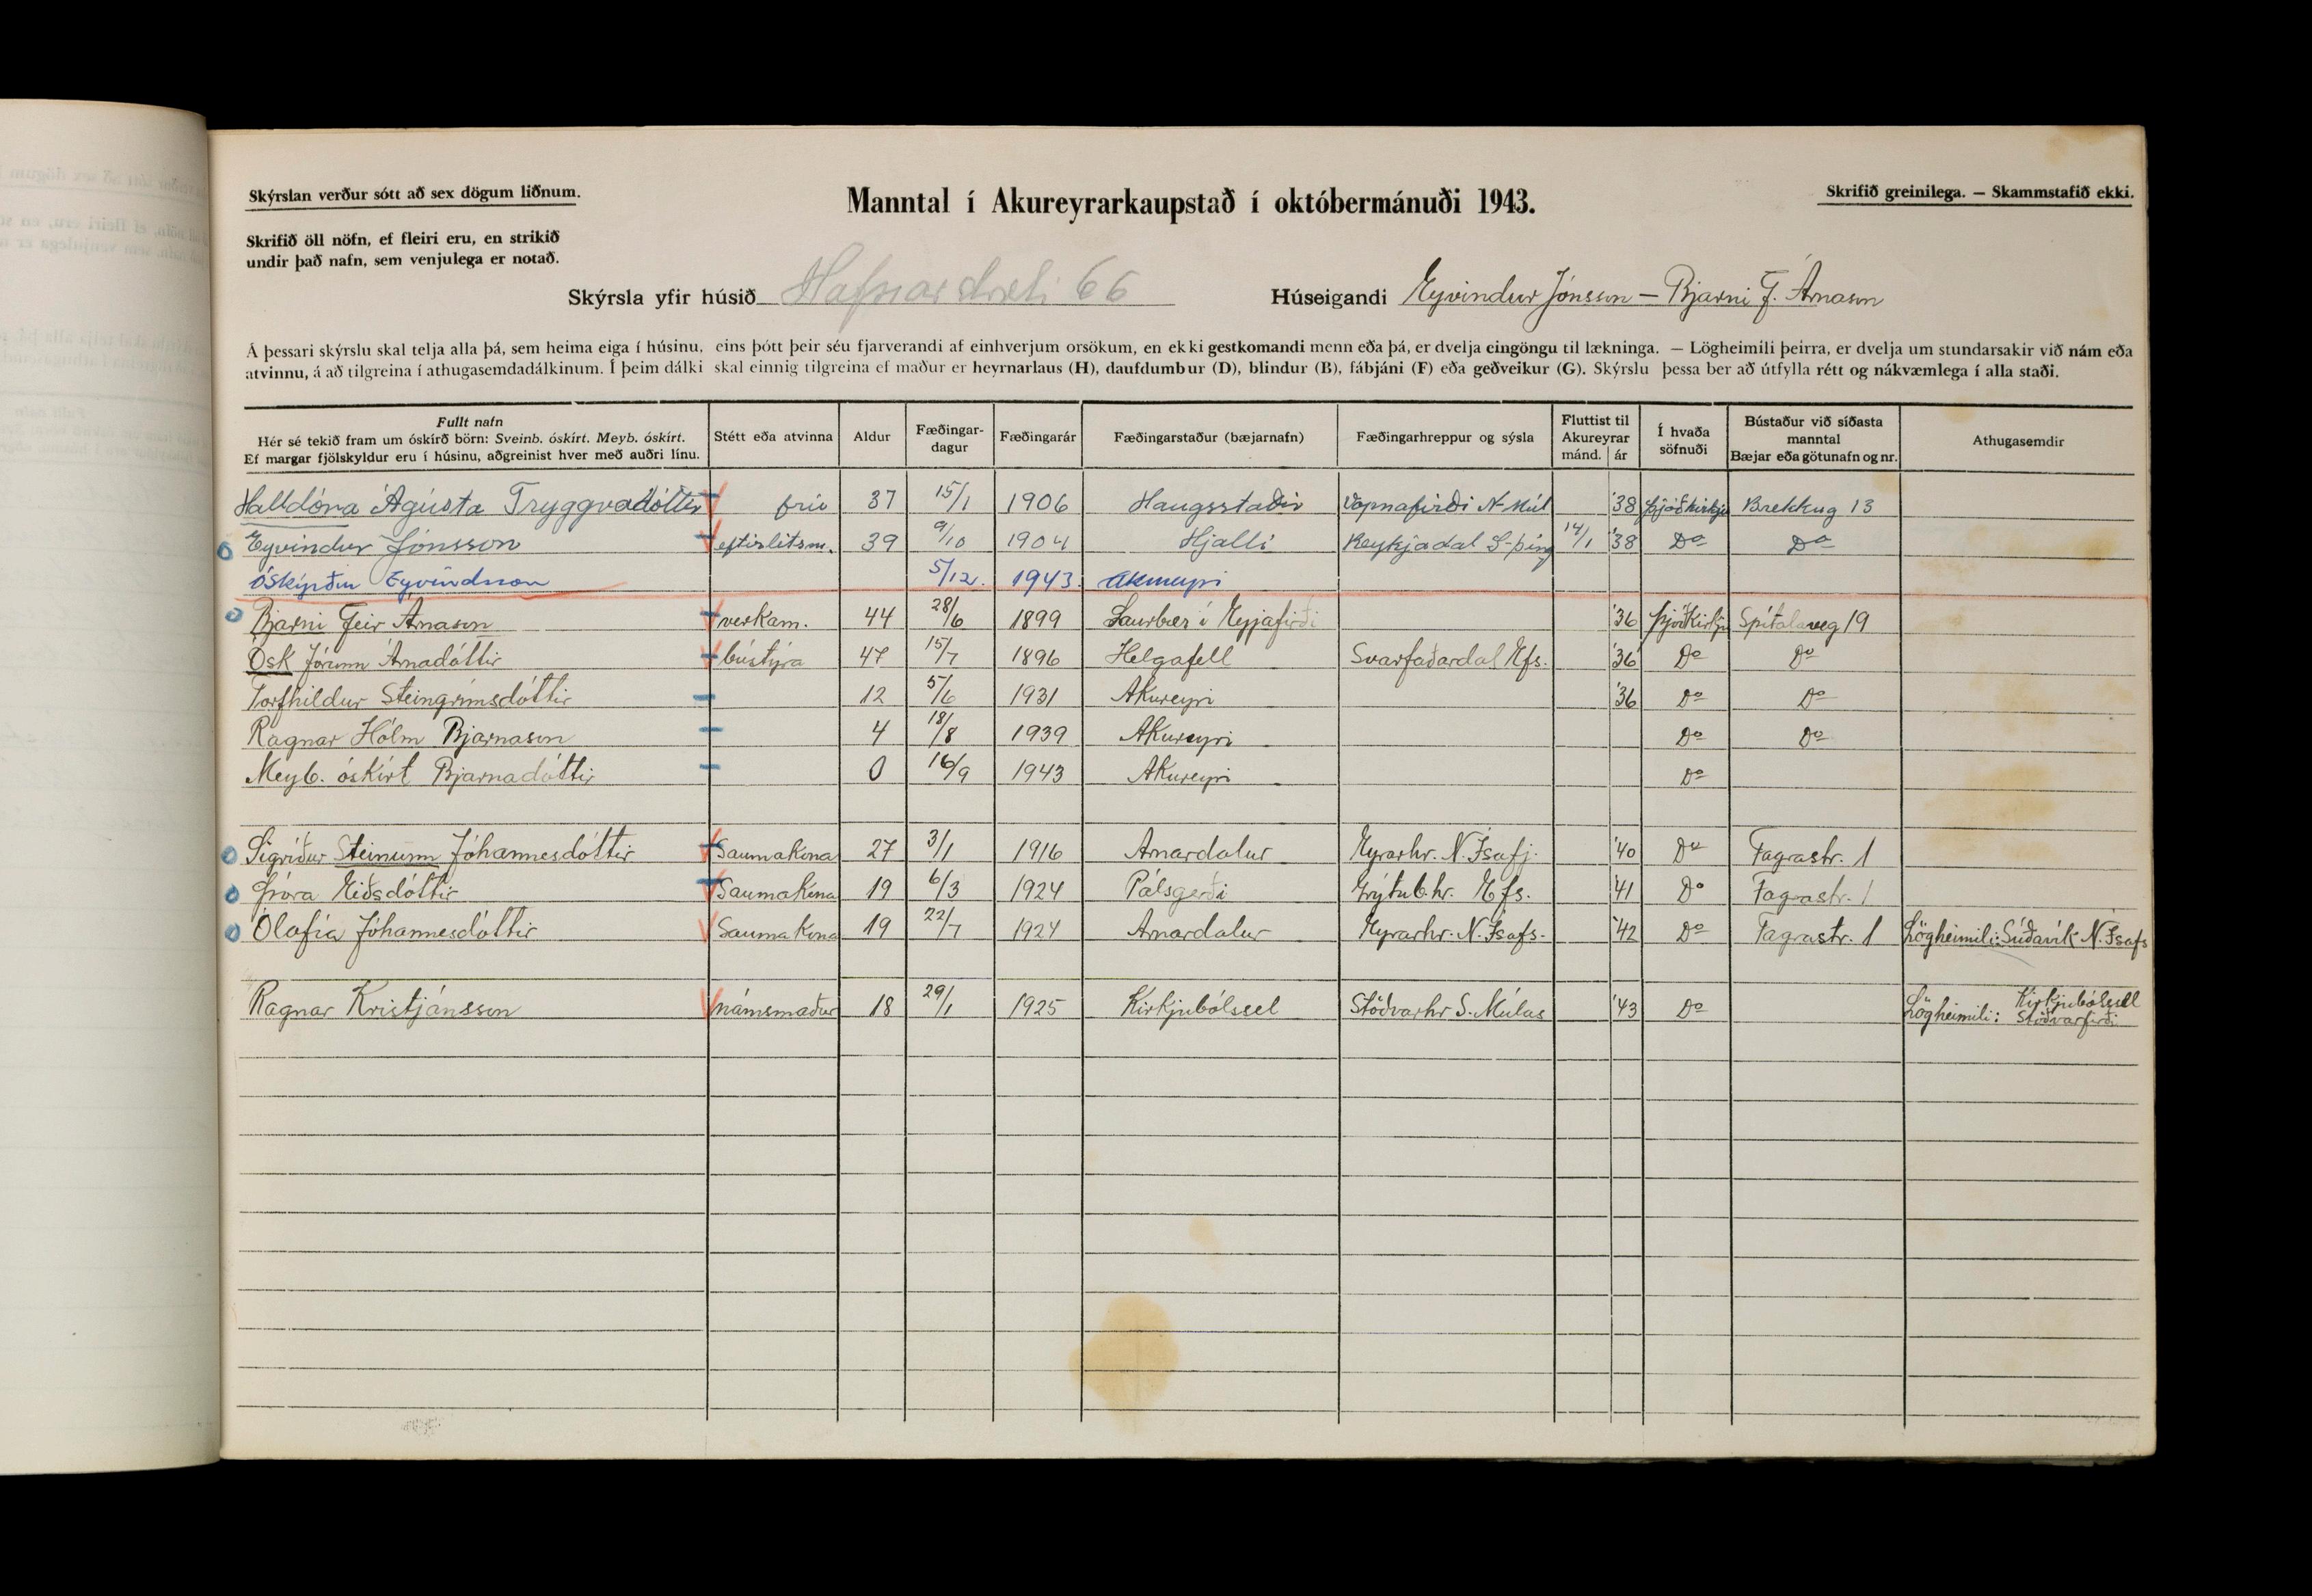 Skýrslan verður sótt að sex dögum liðnum.
Manntal í Akureyrarkaupstað í októbermánuði 1943.
Skrifið greinilega. — Skammstafið ekki.
Skrifið öll nöfn, ef fleiri eru, en strikið
undir það nafn, sem venjulega er notað.
Skýrsla yfir húsið Hafnarstræti 66 Húseigandi Eyvindur Jónsson — Bjarni F. Árnason
Á þessari skýrslu skal telja alla þá, sem heima eiga í húsinu, eins þótt þeir séu fjarverandi af einhverjum orsökum, en ekki gestkomandi menn eða þá, er dvelja eingöngu til lækninga. — Lögheimili þeirra, er dvelja um stundarsakir við nám eða
atvinnu, á að tilgreina í athugasemdadálkinum. Í þeim dálki skal einnig tilgreina ef maður er heyrnarlaus (H), daufdumbur (D), blindur (B), fábjáni (F) eða geðveikur (G). Skýrslu þessa ber að útfylla rétt og nákvæmlega í alla staði.
Fullt nafn
Hér sé tekið fram um óskírð börn: Sveinb. óskírt. Meyb. óskírt.
Ef margar fjölskyldur eru í húsinu, aðgreinist hver með auðri línu.
Stétt eða atvinna
Aldur
Fæðingar-
dagur
Fæðingarár
Fæðingarstaður (bæjarnafn)
Fæðingarhreppur og sýsla
Fluttist til
Akureyrar
mánd. ár
Í hvaða
söfnuði
Bústaður við síðasta
manntal
Bæjar eða götunafn og nr.
Athugasemdir
Halldóra Ágústa Tryggvadóttir frú 37 15/1 1906 Haugsstaðir Vopnafirði N-Múl '38 Þjóðkirkju Brekkug 13
Eyvindur Jónsson eftirlitsm. 39 9/10 1904 Hjalli Reykjadal S-Þing 14/1 '38 Do Do
Óskýrður Eyvindsson 5/12. 1943. Akureyri
Bjarni Geir Árnason verkam. 44 28/6 1899 Saurbær í Eyjafirði '36 Þjóðkirkju Spítalaveg 19
Ósk Jórunn Árnadóttir bústýra 47 15/7 1896 Helgafell Svarfaðardal Efs. '36 Do Do
Torfhildur Steingrímsdóttir 12 5/6 1931 Akureyri '36 Do Do
Ragnar Hólm Bjarnason 4 18/8 1939 Akureyri Do Do
Meyb. óskírt Bjarnadóttir 0 16/9 1943 Akureyri Do
Sigríður Steinunn Jóhannesdóttir Saumakona 27 3/1 1916 Arnardalur Eyrarhr. N. Ísafj. '40 Do Fagrastr. 1
Þóra Eiðsdóttir Saumakona 19 6/3 1924 Pálsgerði Grýtub.hr. Efs. '41 Do Fagrastr. 1
Ólafía Jóhannesdóttir Saumakona 19 22/7 1924 Arnardalur Eyrarhr. N. Ísafs. '42 Do Fagrastr. 1 Lögheimili: Súðavík N. Ísafs
Ragnar Kristjánsson námsmaður 18 29/1 1925 Kirkjubólssel Stöðvarhr S. Múlas '43 Do Lögheimili: Kirkjubólssel
Stöðvarfirði